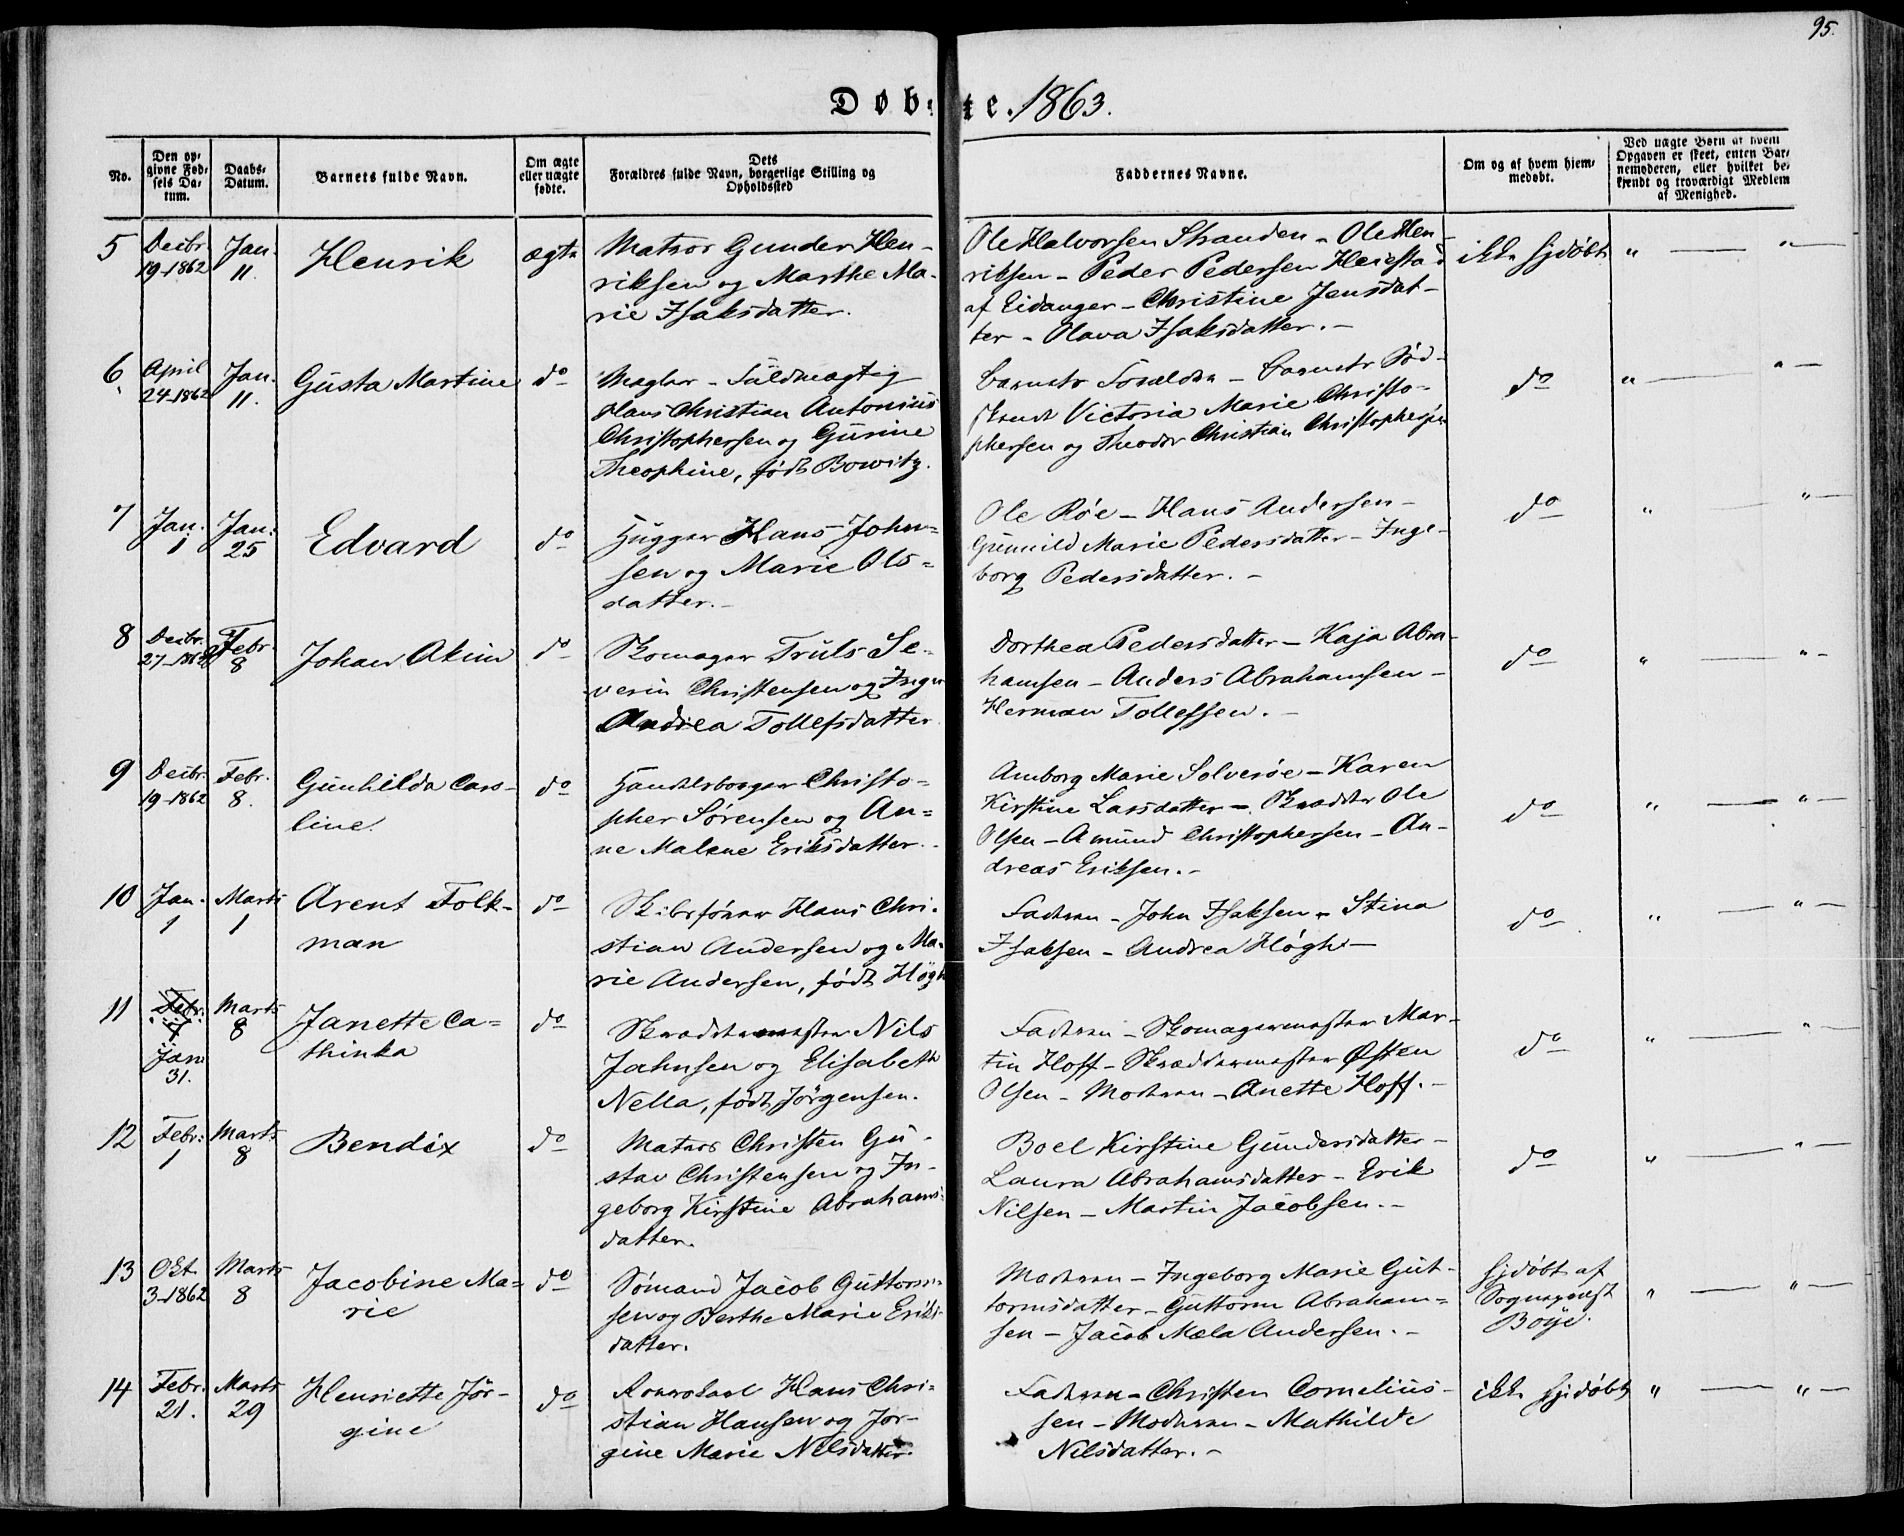 95.
Døbte. 1863.
No.
Den op-
givne Fød-
sels Da-
tum.
Daabs-
Datum.
Barnets fulde Navn.
Om ægte
eller uægte
fødte.
Dets
Forældres fulde Navn, borgerlige Stilling og
Opholdssted
Faddernes Navne.
Om og af hvem hjem-
medøbt.
Ved uægte Børn af hvem
Opgaven er skeet, enten Bar-
nemoderen, eller hvilket be-
kjendt og troværdigt Medlem
af Menighed.
5
Decbr.
19-1862
Jan.
11.
Henrik
ægte
Matros Gunder Hen-
riksen og Marthe Ma-
rie Isaksdatter.
Ole Halvorsen Stranden - Ole Hen-
riksen - Peder Pedersen Heiestad
af Eidanger - Christine Jensdat-
ter - Olava Isaksdatter. -
ikke hjdøbt
" — " —
6
April
24-1862
Jan.
11.
Gusta Martine
do
Mægler-Fuldmægtig
Hans Christian Antonius
Christophersen og Gurine
Theophine, født Bowitz.
Barnets Forældre - Barnets Sød-
skende Victoria Marie Christo-
phersen og Theodor Christian Christophersen
do
" — " —
7
Jan.
1
Jan.
25
Edvard
do
Hugger Hans John-
sen og Marie Ols-
datter. -
Ole Røe - Hans Andersen -
Gunnild Marie Pedersdatter - Inge-
borg Pedersdatter. -
do
" — " —
8
Decbr.
27-1862
Febr.
8
Johan Akim
do
Skomager Truls Se-
verin Christensen og Inger
Andrea Tollefsdatter
Dorthea Pedersdatter - Kaja Abra-
hamsen - Anders Abrahamsen -
Herman Tollefsen. -
do
" — " —
9
Decbr.
19-1862
Febr.
8.
Gunhilda Caro-
line.
do
Handelsborger Christo-
pher Sørensen og An-
ne Malene Eriksdatter. -
Amborg Marie Solverøe - Karen
Kirstine Larsdatter - Skrædder Ole
Olsen - Amund Christophersen - An-
dreas Eriksen. -
do
" — " —
10
Jan.
1
Marts
1
Arent Folk-
man
do
Skibsfører Hans Chri-
stian Andersen og Ma-
rie Andersen, født Høgh
Faderen - John Isaksen - Stina
Isaksen - Andrea Høgh -
do
" — " —
11
Febr.
Jan.
31.
Marts
8
Janette Ca-
thinka
do
Skræddermester Nils
Jahnsen og Elisabeth
Nella, født Jørgensen.
Faderen - Skomagermester Mar-
tin Hoff - Skræddermester Østen
Olsen - Moderen - Anette Hoff. -
do
" — " —
12
Febr.
1
Marts
8
Bendix
do
Matros Christen Gu-
stav Christensen og In-
geborg Kirstine Abrahams-
datter.
Boel Kirstine Gundersdatter -
Laura Abrahamsdatter - Erik
Nilsen - Martin Jacobsen. -
do
" — " —
13
Okt.
3-1862
Marts
8
Jacobine Ma-
rie
do
Sømand Jacob Guttorm-
sen og Berthe Marie Eriks-
datter.
Moderen - Ingeborg Marie Gut-
tormsdatter - Guttorm Abraham-
sen - Jacob Mæla Andersen. -
hjdøbt af
Sognepræst
Böye.
" — " —
14
Febr.
21.
Marts
29
Henriette Jør-
gine
do
Hans Chri-
stian Hansen og Jør-
gine Marie Nilsdatter.
Faderen - Christen Cornelius-
sen - Moderen - Mathilde
Nilsdatter. -
ikke hjdøbt
" — " —